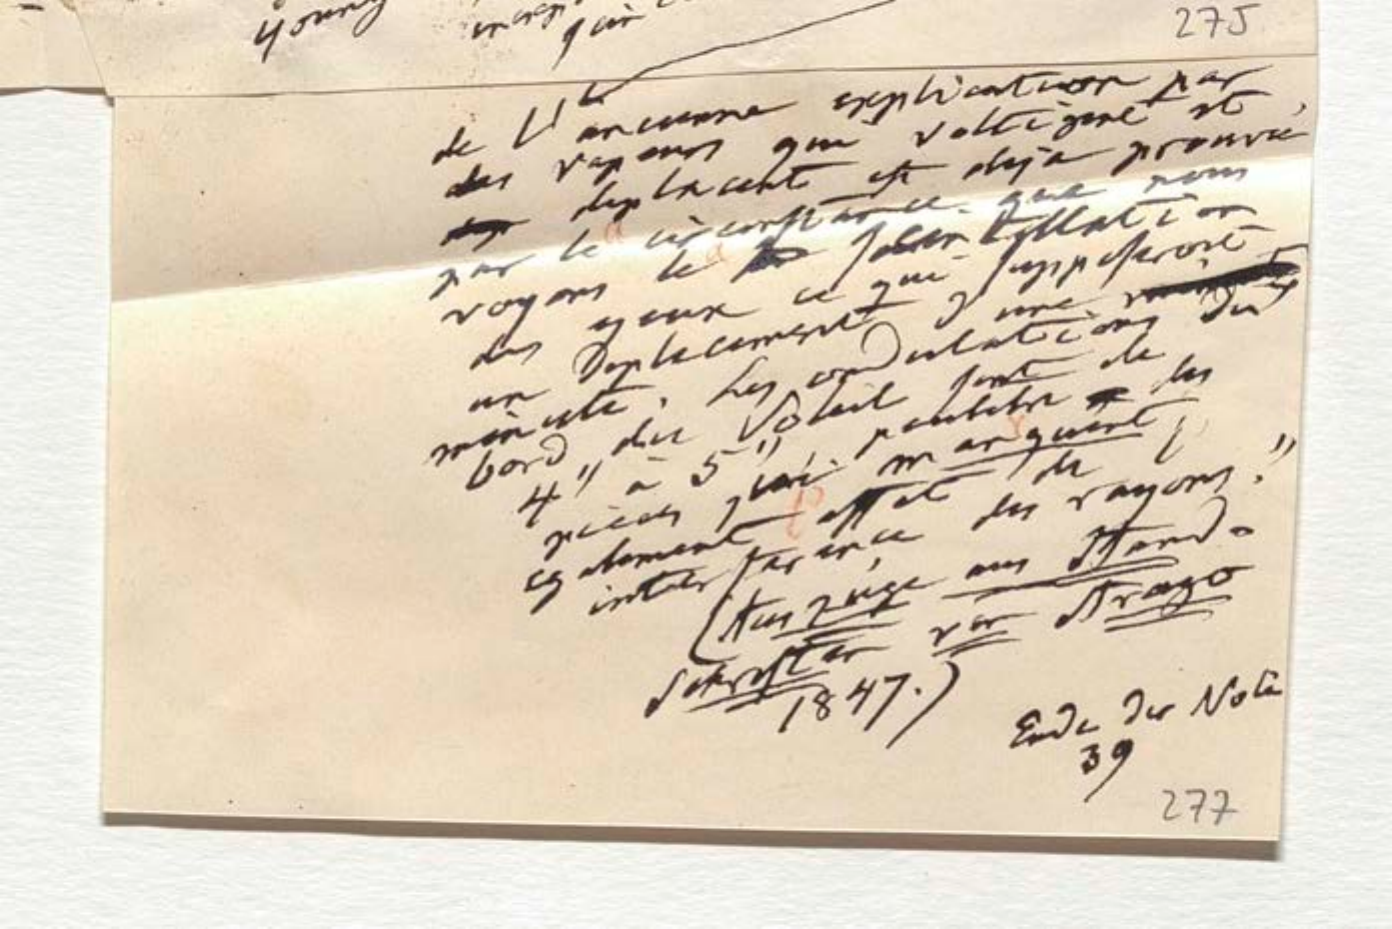 young
275
de l'ancienne explication par
des vapeurs qui voltigent et
deplacent est deja prouvée
par la circonstance que nous
voyons la scintillation
des yeux ce qui supposeroit
un deplacement d'une
minute. Les ondulations du
bord du Soleil sont de
4" à 5"
pièces qui manquent,
egalement effet de
interference des rayons."
(Auszüge aus Hand-
schriften von Arago
1847.)
Ende der Note
39
277